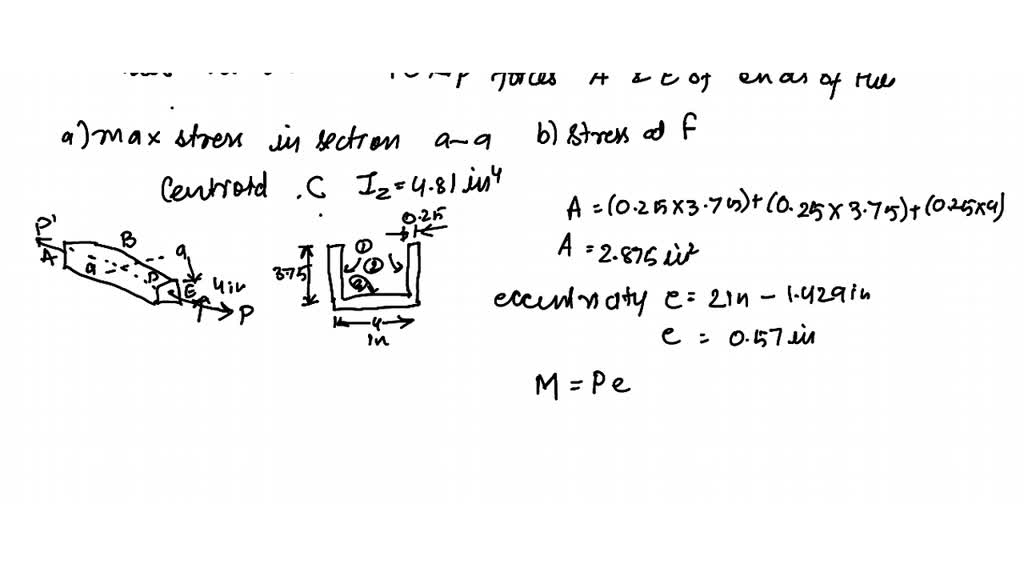 forces A & E of ends of the
a) max stress in section a-a b) stress at F
Centroid C I_z = 4.81 in⁴
A = (0.25 x 3.75) + (0.25 x 3.75) + (0.25 x 4)
A = 2.875 in²
eccentricity e = 2in - 1.429in
e = 0.57 in
M = Pe
P'
B
a
A
a
D
E
4in
P
0.25
3.75
①
②
4
in